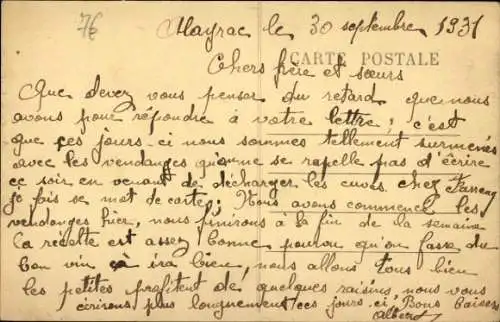 76
Mayrac le 30 septembre 1931
CARTE POSTALE
Chers frère et sœurs
Que devez vous penser du retard que nous
avons pour répondre à votre lettre; c'est
que ces jours-ci nous sommes tellement surmenés
avec les vendanges qu'on ne se rapelle pas d'écrire
ce soir en venant de décharger les cuves chez
je fais se mot de carte; Nous avons commencé les
vendanges hier, nous finirons à la fin de la semaine
la récolte est assez bonne pourvu qu'on fasse du
bon vin ça ira bien, nous allons tous bien
les petites profitent de quelques raisins, nous vous
écrirons plus longuement ces jours-ci, Bons baisers
Albert